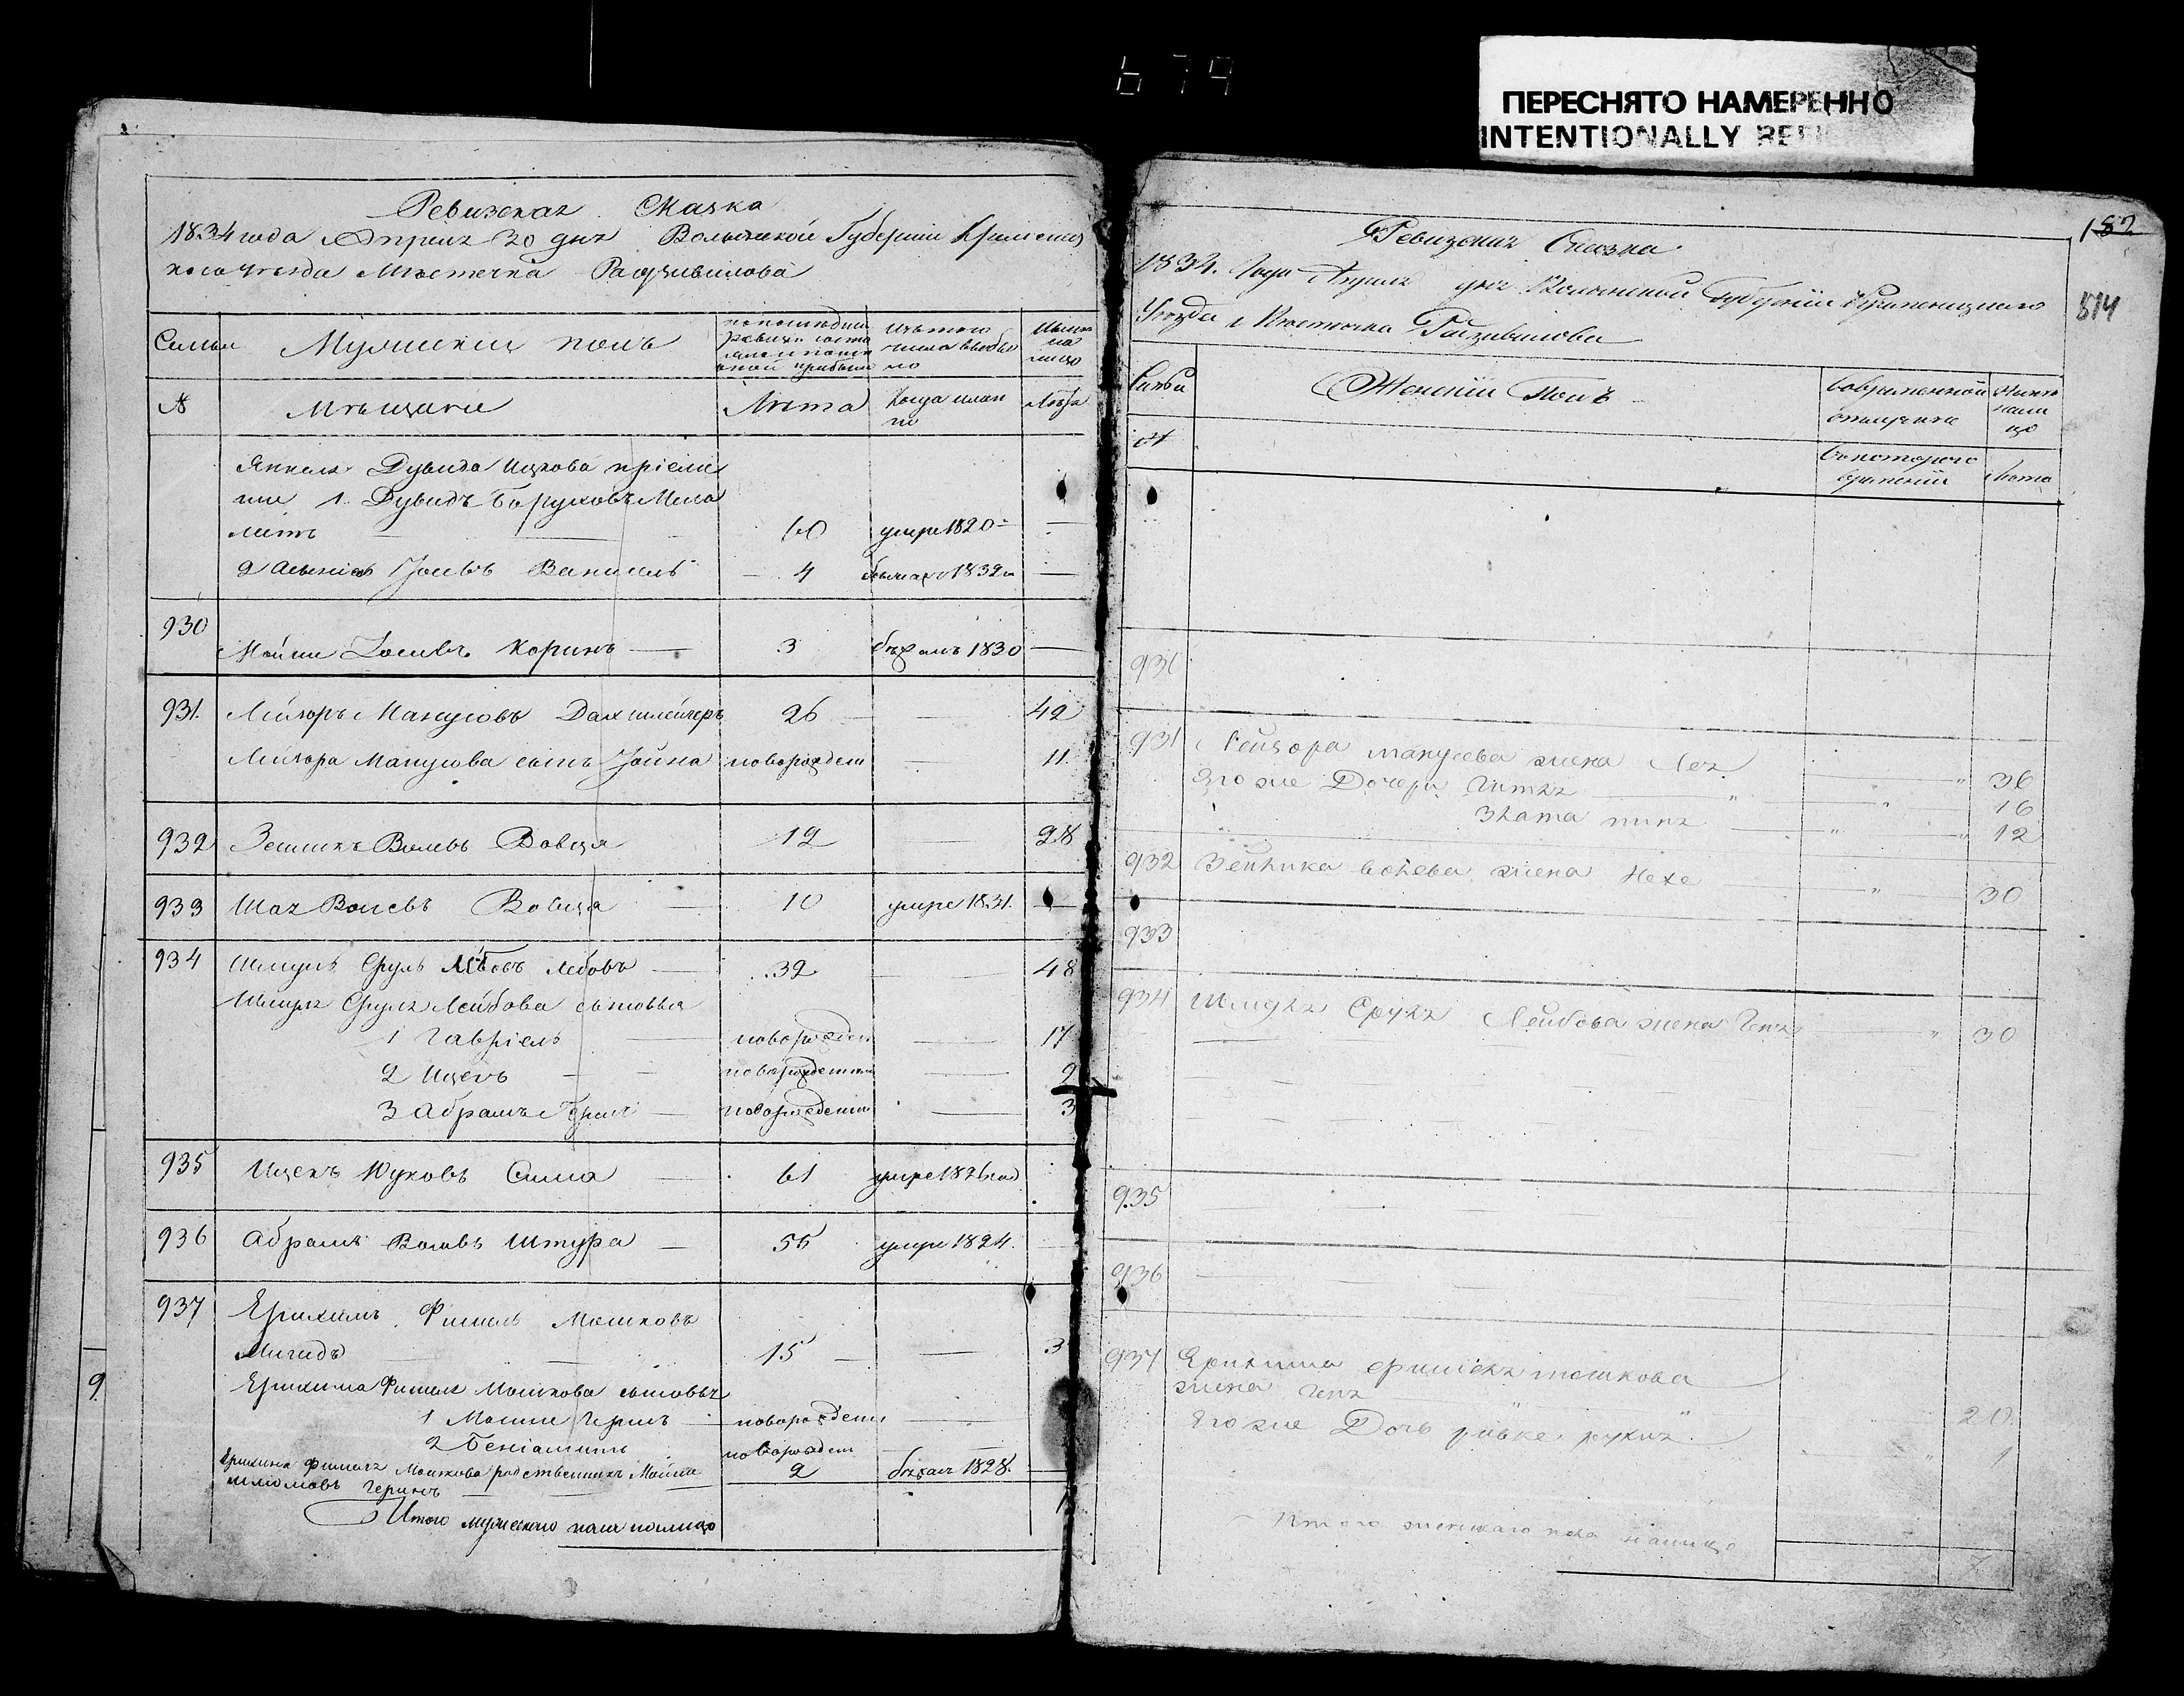 679
ПЕРЕСНЯТО НАМЕРЕННО
INTENTIONALLY
Ревизская Сказка
1834 года Апреля 30 дня Волынской Губернии Кременец
кого уезда Местечка Радзивилова
Семьи
Мужеский полъ
по последней ревизии состояло и после оной прибыло
Изъ того числа выбыло
Ныне на лицо
№
Мещане
Лета
Когда имянно
Лета
Янкеля Дувида Ицкова приемы
ши 1. Дувидъ Боруховъ
60 умре 1820 —
2 Иосевъ 4 1832 —
930
Мойше Иосевъ Коринъ — 3 бежалъ 1830 —
931. Лейзоръ Манусовъ 26 — 42
Лейзора Манусова сынъ Иойна новорожден — 11
932 Зейликъ Волевъ Вовця 12 — 28
933 Шая Волевъ Вовця 10 умре 1831. —
934 Шмуль Сруль Лейбовъ — 32 — 48
Шмуля Сруля Лейбова сыновья
1 Гавріель — новорожден — 17
2 Ицекъ — новорожденны —
3 Абрамъ — новорожденны — 3
935 Ицекъ Юковъ Сима — 61 умре 1826 год
936 Абрамъ Волевъ Штура — 55 умре 1824.
937 Ерихимъ Фишель Мошковъ
Магидъ 15 — 3
Ерихима Фишеля Мошкова сыновья
1 Мошке Гершъ новорожден —
2 Беніаминъ новорожден —
Ерихима Фишеля Мошкова родственникъ Мойше 2 бежалъ 1828. —
Шлиомовъ Геринъ
Итого мужескаго пола налицо
9
182
814
Ревизская Сказка
1834. Года Апреля дня Волынской Губернии Кременецкаго
Уезда Местечка Радзивилова
Семьи
Женский Полъ
Во временной отлучке
Ныне налицо
№
Съ котораго времени
Лета
930
931 Лейзора Манусева жена Лея — 36
Его же Дочери Гитля — 16
Злата — 12
932 Зейлика Волева жена Нехе — 30
933
934 Шмуля Сруля Лейбова жена Геня — 30
935
936
937 Ерихима Фишеля Мошкова
жена Геня 20
Его же Дочь Ривке 1
Итого женскаго пола налицо 7